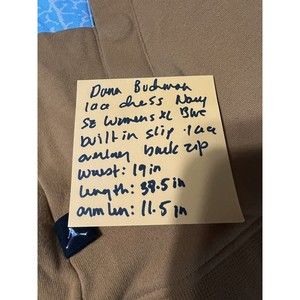 Dana Buchman
lace dress Navy
Sz Womens XL Blue
built in slip . lace
overlay back zip
waist: 19 in
length: 38.5 in
arm len: 11.5 in